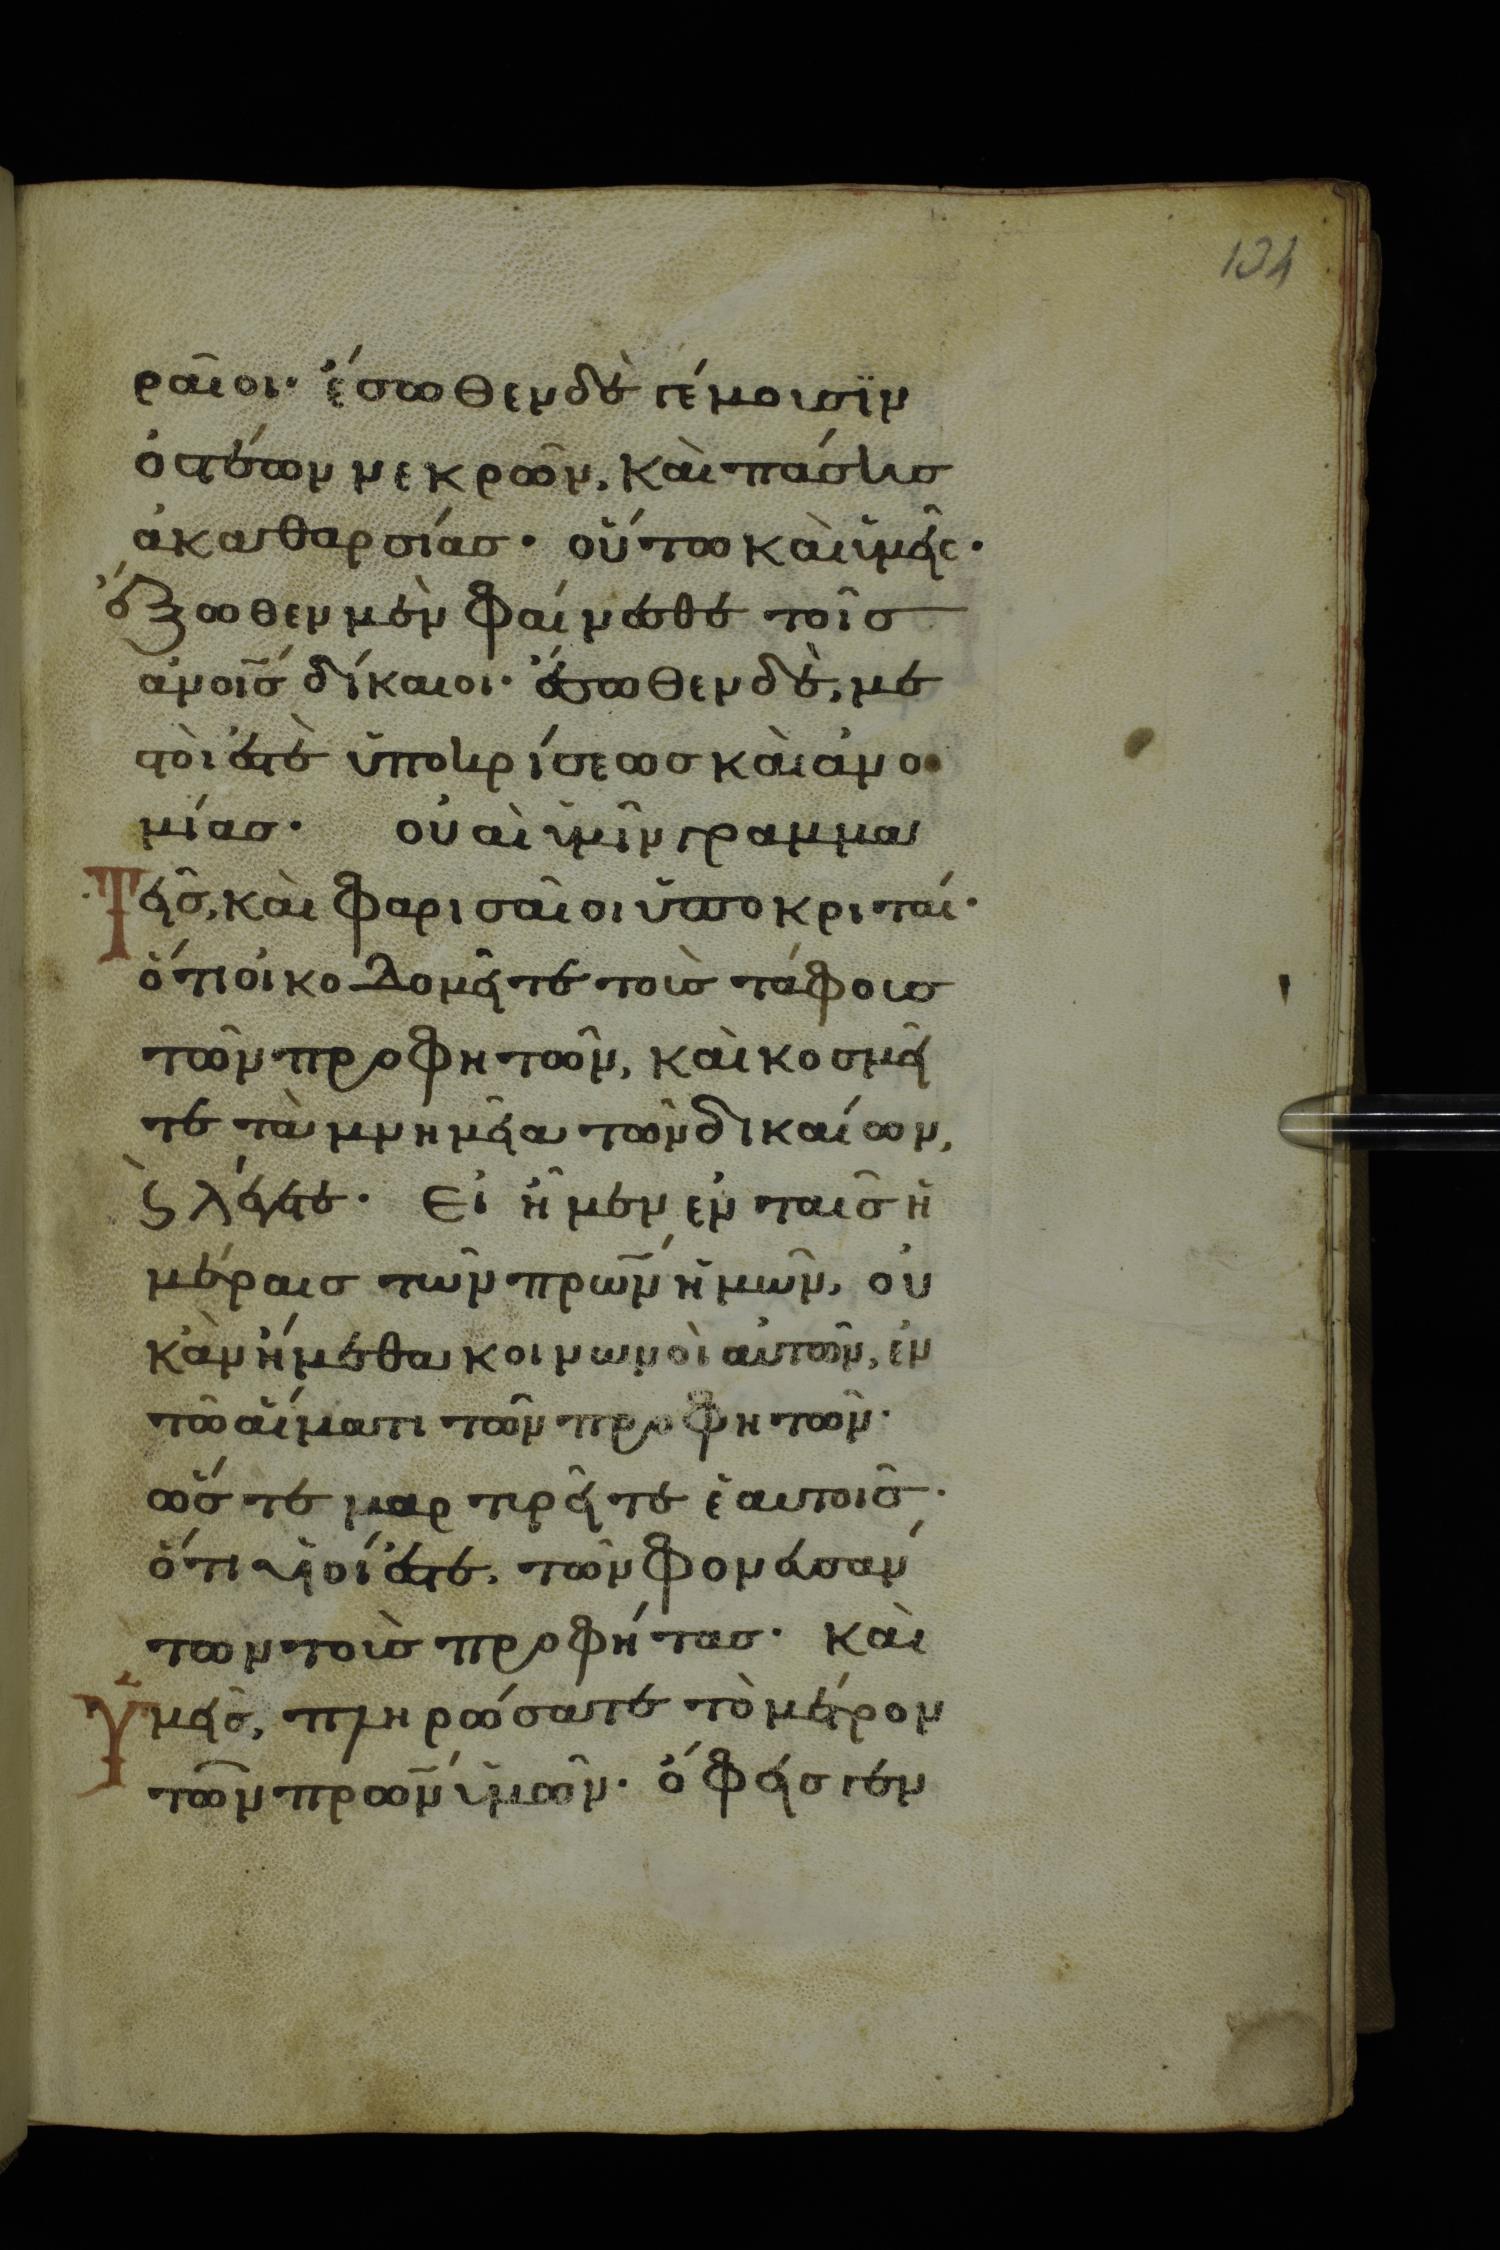 134
ραῖοι· ἔσωθεν δὲ γέμουσϊν
ὀστέων νεκρῶν, καὶ πάσης
ἀκαθαρσίας· οὕτω καὶ ὑμεῖς·
ἔξωθεν μὲν φαίνεσθε τοῖς
ἀνοις δίκαιοι· ἔσωθεν δὲ, με
στοί ἐστὲ ὑποκρίσεως καὶ ἀνο
μίας· οὐαὶ ὑμῖν γραμμα
Τεῖς, καὶ φαρισαῖοι ὑποκριταί·
ὅτι οἰκοδομεῖτε τοὺς τάφους
τῶν προφητῶν, καὶ κοσμεῖ
τε τὰ μνημεῖα τῶν δικαίων,
ϛ̀ λέγετε· Εἰ ἦμεν ἐν ταῖς ἡ
μέραις τῶν πρων ἡμῶν, οὐ
κὰν ἤμεθα κοινωνοὶ αὐτῶν, ἐν
τῶ αἵματι τῶν προφητῶν·
ὥστε μαρτυρεῖτε ἑαυτοῖς·
ὅτι υἱοί ἐστέ, τῶν φονευσάν
των τοὺς προφήτας· καὶ
Ὑμεῖς, πληρώσατε τὸ μέτρον
τῶν πρων ὑμῶν· ὄφεις γέν